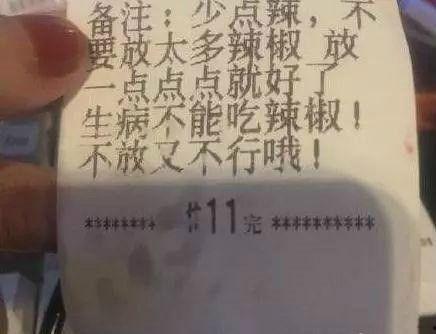 备注：少点辣，不
要放太多辣椒，放
一点点点就好了
生病不能吃辣椒！
不放又不行哦！
******** #11完 **********